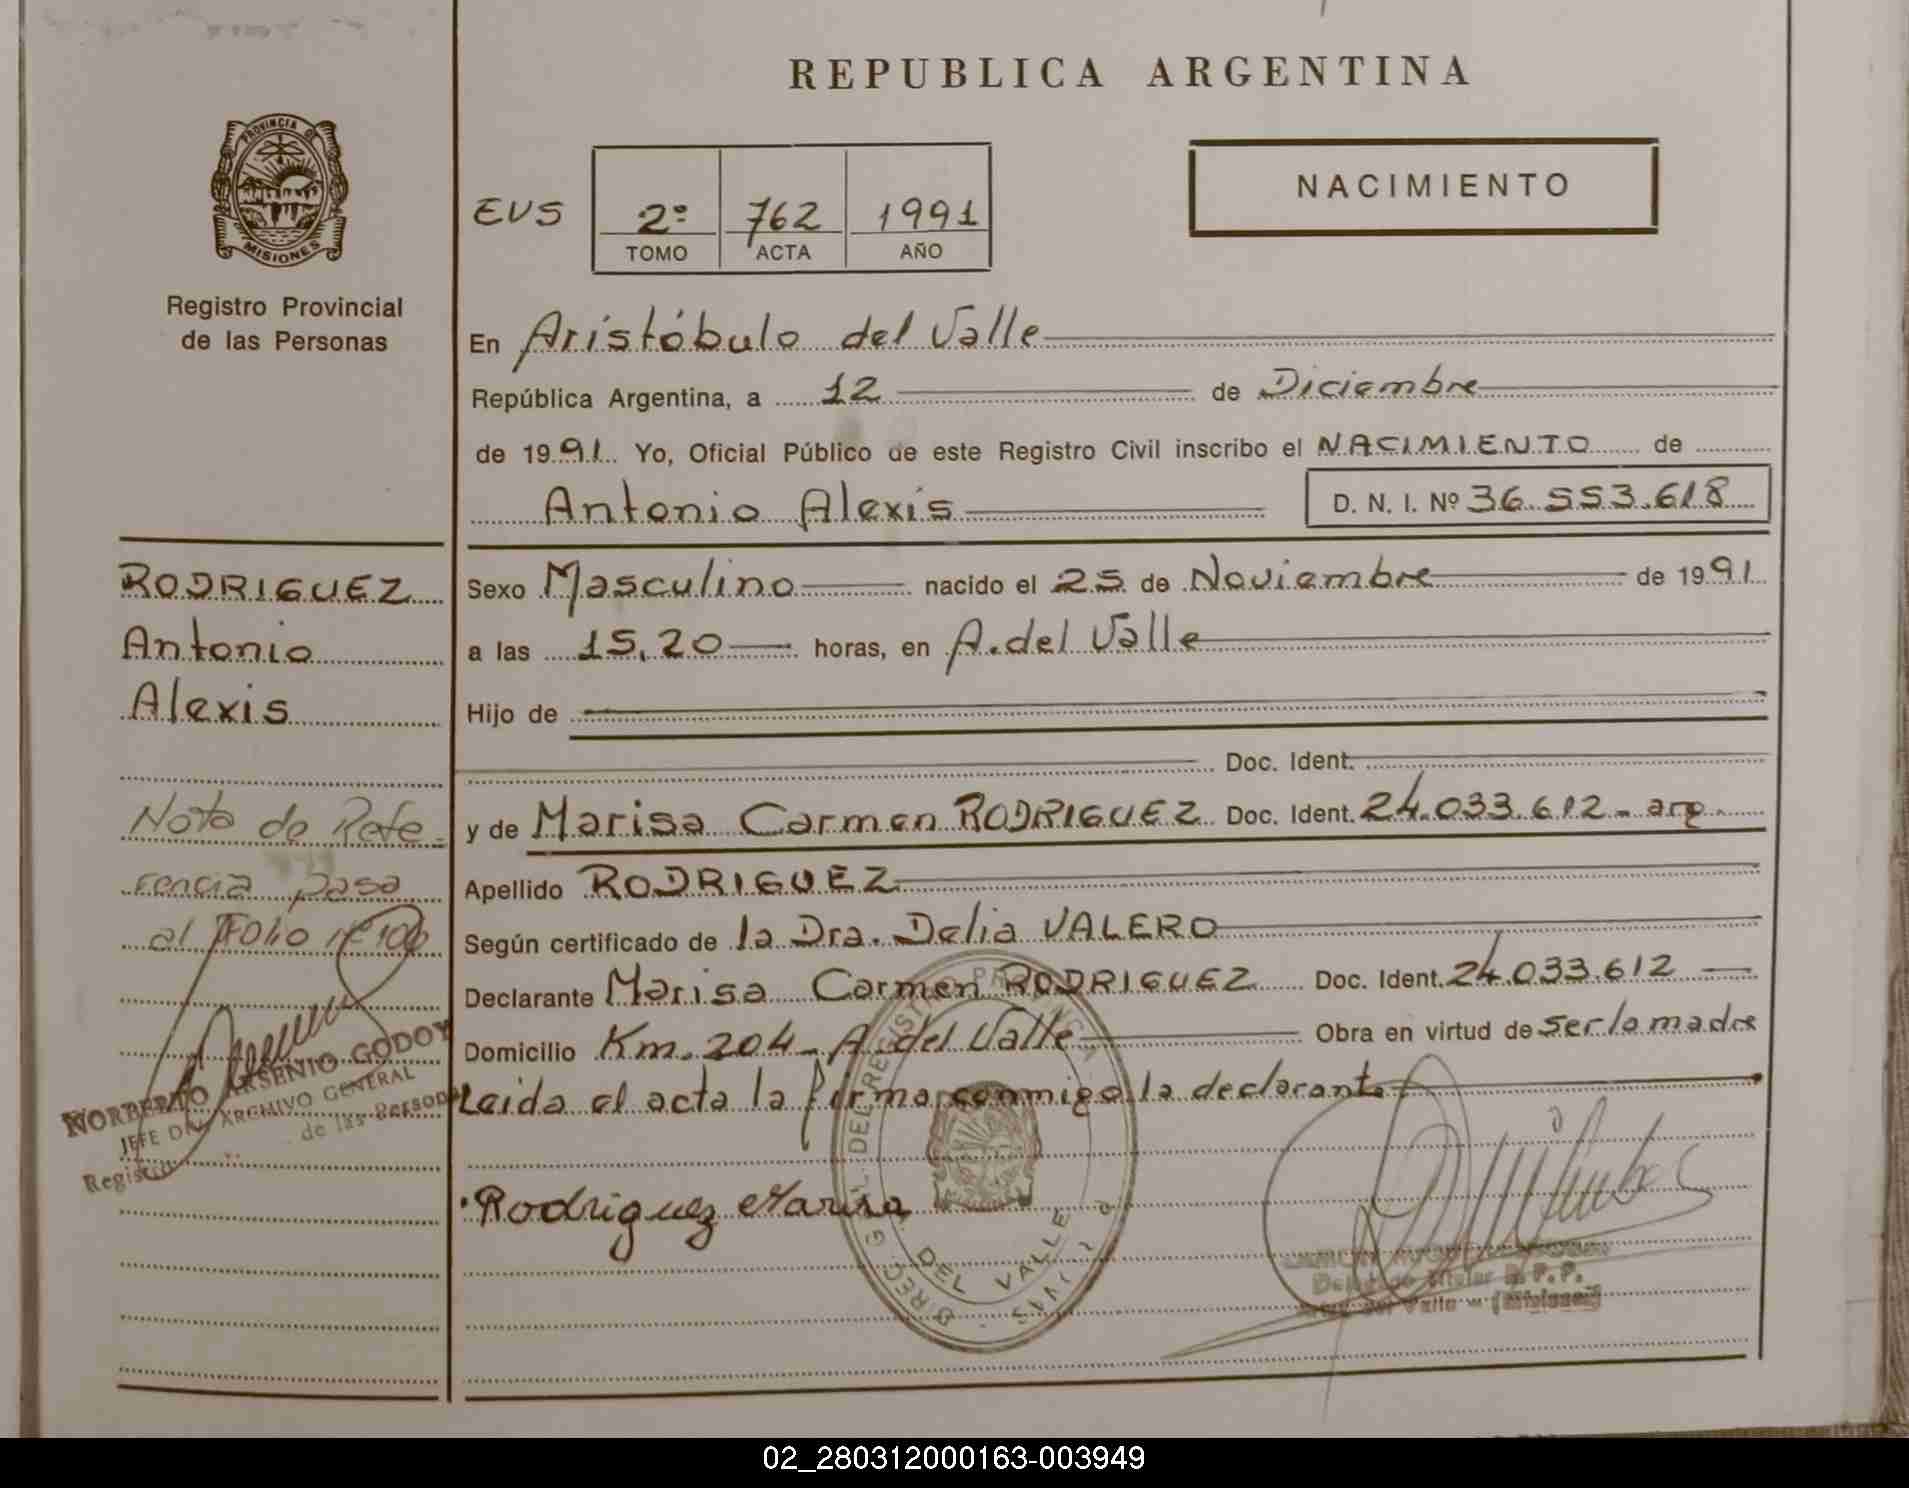 REPUBLICA ARGENTINA
PROVINCIA DE
MISIONES
Registro Provincial
de las Personas
EVS
2º 762 1991
TOMO ACTA AÑO
NACIMIENTO
En Aristóbulo del Valle
República Argentina, a 12 de Diciembre
de 1991 Yo, Oficial Público de este Registro Civil inscribo el NACIMIENTO de
Antonio Alexis D. N. I. Nº 36.553.618
RODRIGUEZ
Antonio
Alexis
Nota de Refe-
rencia pasa
al Folio Nº 100
NORBERTO ARSENIO GODOY
JEFE DIV. ARCHIVO GENERAL
de las Personas
Sexo Masculino nacido el 25 de Noviembre de 1991
a las 15,20 horas, en A. del Valle
Hijo de
Doc. Ident.
y de Marisa Carmen RODRIGUEZ Doc. Ident. 24.033.612 - arg.
Apellido RODRIGUEZ
Según certificado de la Dra. Delia VALERO
Declarante Marisa Carmen RODRIGUEZ Doc. Ident. 24.033.612
Domicilio Km. 204 - A. del Valle Obra en virtud de ser la madre
Leida el acta la firma conmigo la declarante
Rodriguez Marisa
DEL VALLE
Titular R. P. P.
del Valle - (Misiones)
02_280312000163-003949